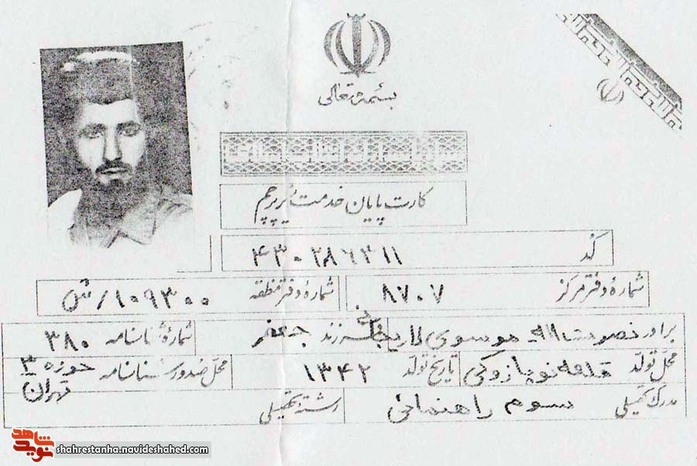 بسمه تعالی
کارت پایان خدمت زیر پرچم
کد ۴۳۰۲۸۶۳۱۱
شماره دفتر مرکز ۸۷۰۷ شماره دفتر منطقه ۱۰۹۳۰۰/ش
برادر موسوی فرزند جعفر شماره شناسنامه ۳۸۰
محل تولد قلعه نو تاریخ تولد ۱۳۴۲ محل صدور شناسنامه حوزه ۳ تهران
مدرک تحصیلی سوم راهنمائی رشته تحصیلی
شاهد
نوید
shahrestanha.navideshahed.com